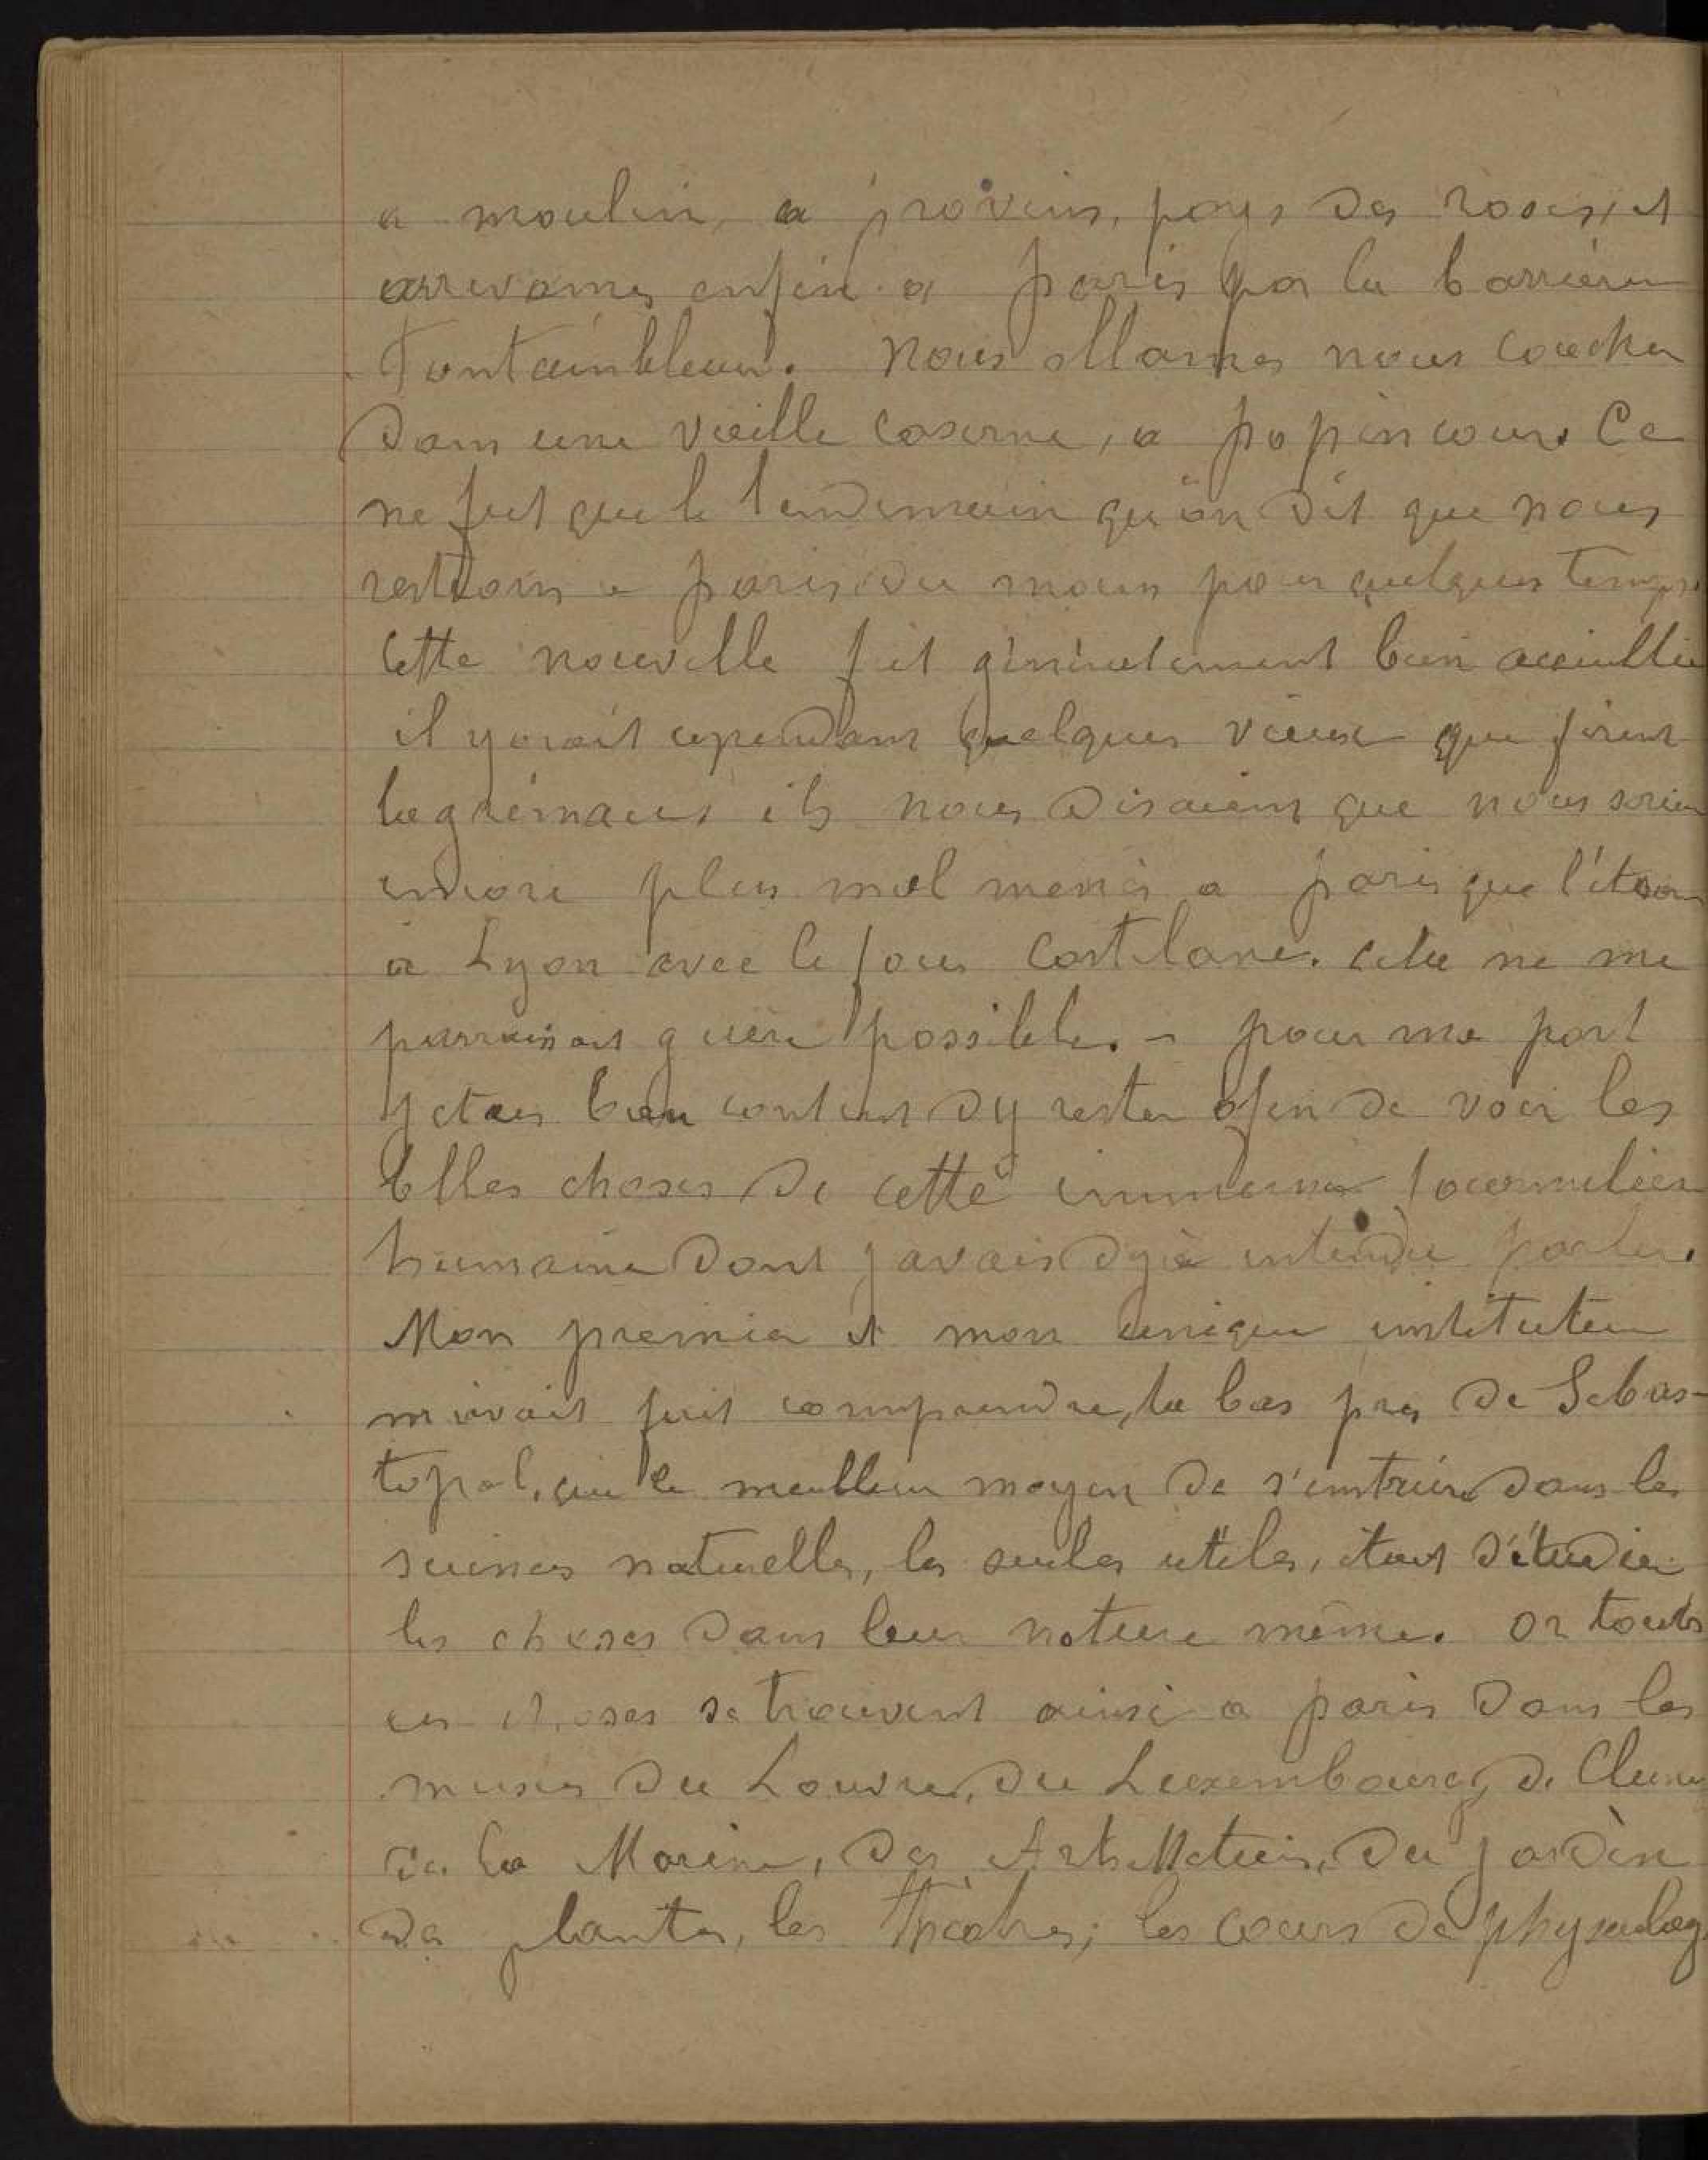 a moulin, a provins, pays des roses, et
arrivames enfin a paris par la barrière
Fontainbleau. Nous allames nous coucher
dans une vieille caserne, a popincour. Ce
ne fut que le lendemain qu'on dit que nous
restions a paris du moins pour quelques temps.
cette nouvelle fut généralement bien accueillie
il yavait cependant quelques vieux que firent
la grimaces ils nous disaient que nous serien
encore plus mal menés a paris que l'étion
à Lyon avec le fou Castelane. cela ne me
parraissait guère possible. - pour ma part
jetais bien content dy rester afin de voir les
belles choses de cette immense fourmilière
humaine dont javais dejà entendu parler.
Mon premier et mon unique instituteur
m'avait fait comprendre, la bas pres de Sebas-
topol, que le meilleur moyen de s'instruire dans les
sciences naturelles, les seules utiles, était d'étudier
les choses dans leur nature même. or toutes
ces choses se trouvent ainsi a paris dans les
musées du Louvre, du Luxembourg, de Cluny
de la Marine, des Arts Metiers, du jardin
des plantes, les théatres; les cours de physiolog